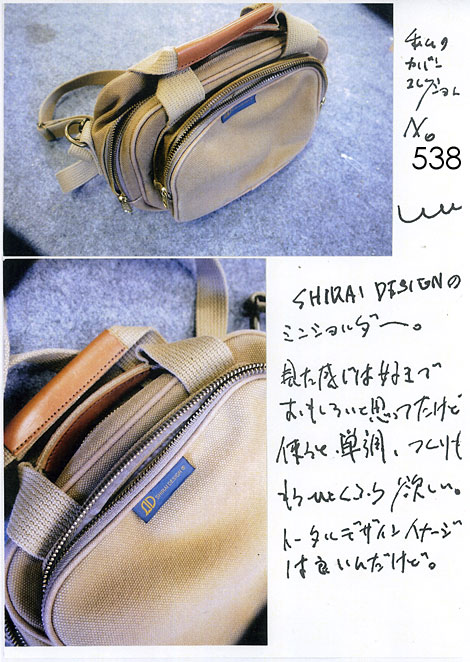 私の
カバン
コレクション
No
538
SHIRAI DESIGNの
ミニショルダー。
見た感じは好きで
おもしろいと思ってたけど
使うと単調、つくりも
もうひとくふう欲しい。
トータルデザインイメージ
は良いんだけど。
SHIRAI DESIGN